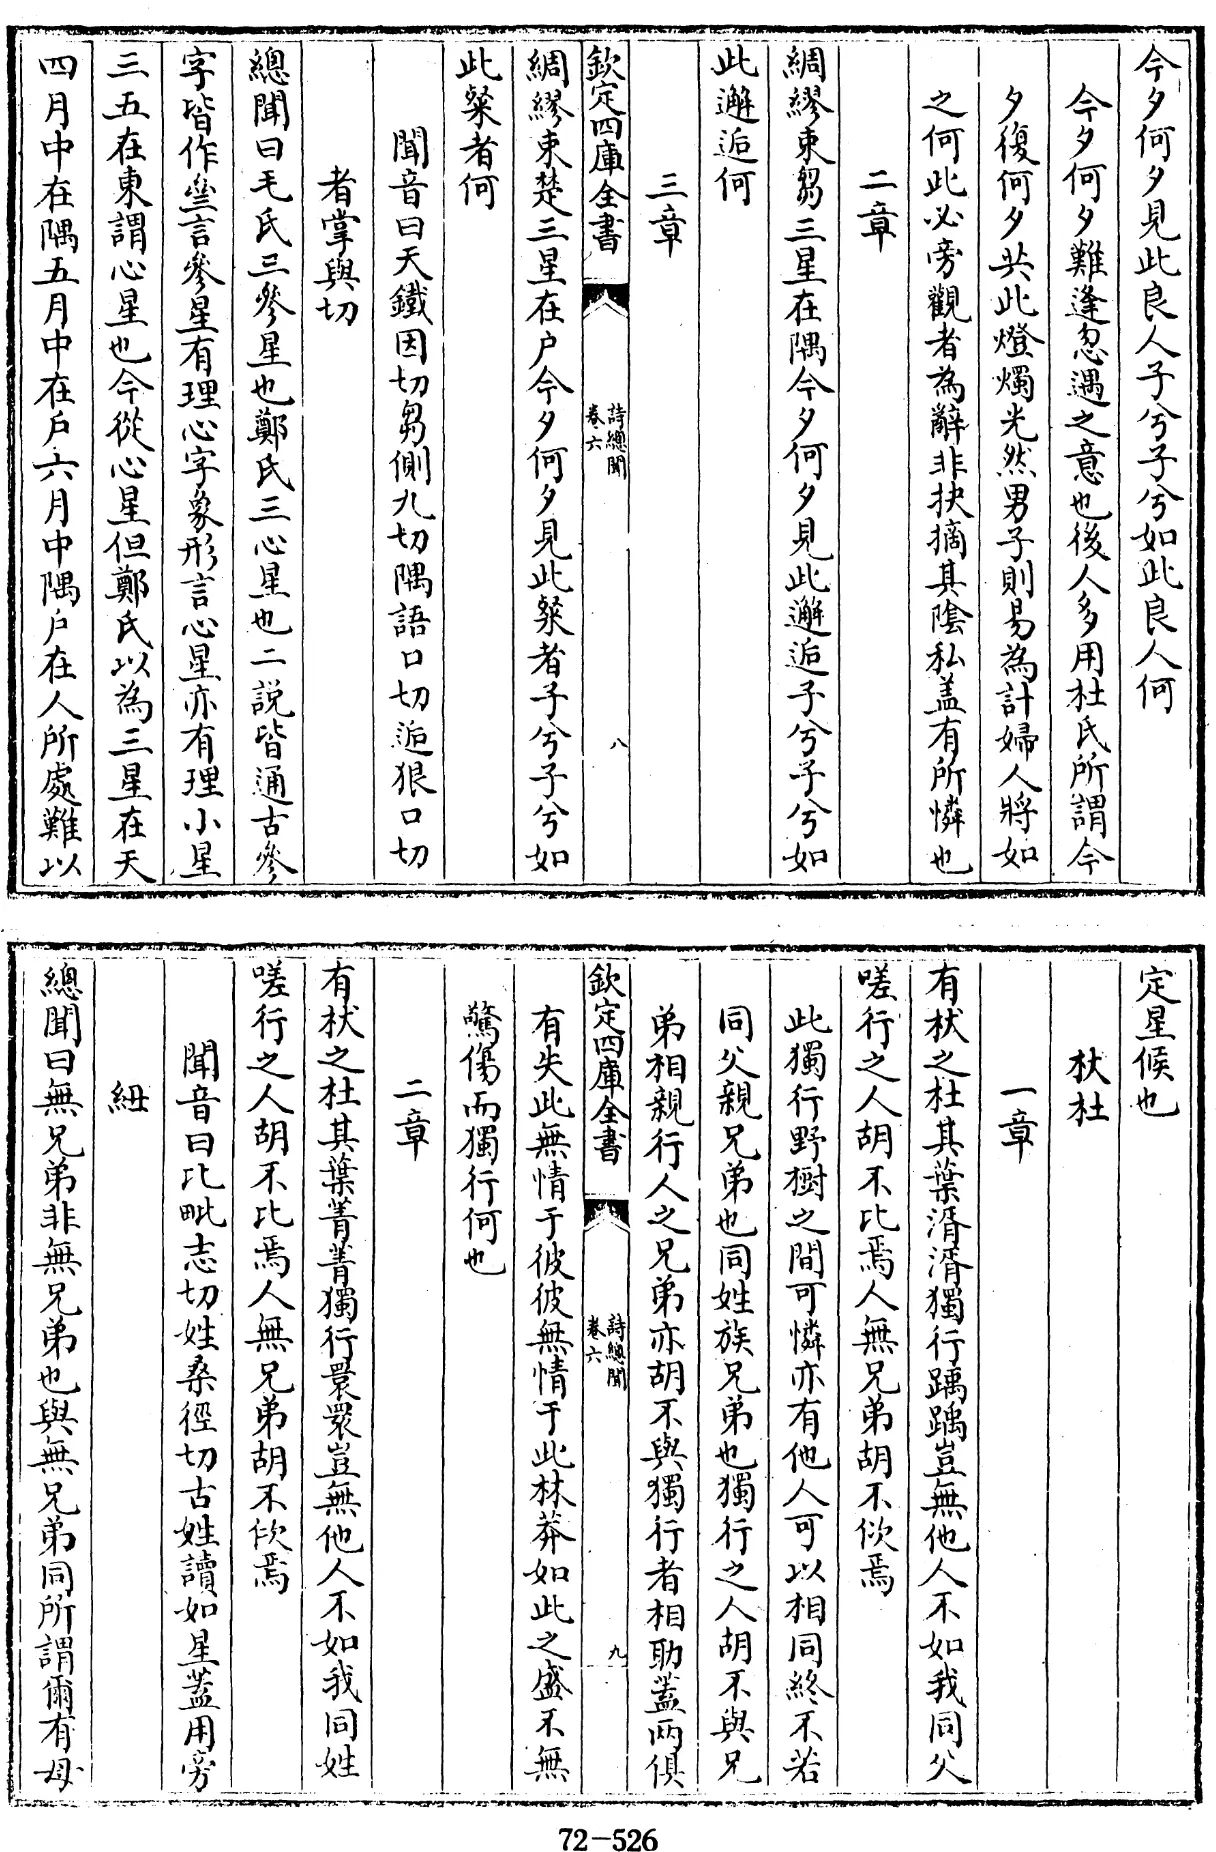 今夕何夕見此良人子兮子兮如此良人何
今夕何夕難逢忽遇之意也後人多用杜氏所謂今
夕復何夕共此燈燭光然男子則易為計婦人將如
之何此必旁觀者為辭非抉摘其陰私盖有所憐也
二章
綢繆束芻三星在隅今夕何夕見此邂逅子兮子兮如
此邂逅何
三章
欽定四庫全書
詩總聞
卷六
八
綢繆束楚三星在戶今夕何夕見此粲者子兮子兮如
此粲者何
聞音曰天鐵因切芻側九切隅語口切逅狠口切
者掌與切
總聞曰毛氏三參星也鄭氏三心星也二說皆通古參
字皆作曑言參星有理心字象形言心星亦有理小星
三五在東謂心星也今從心星但鄭氏以為三星在天
四月中在隅五月中在戶六月中隅戶在人所處難以
定星候也
杕杜
一章
有杕之杜其葉湑湑獨行踽踽豈無他人不如我同父
嗟行之人胡不比焉人無兄弟胡不佽焉
此獨行野樹之間可憐亦有他人可以相同終不若
同父親兄弟也同姓族兄弟也獨行之人胡不與兄
弟相親行人之兄弟亦胡不與獨行者相助蓋兩俱
欽定四庫全書
詩總聞
卷六
九
有失此無情于彼彼無情于此林莽如此之盛不無
驚傷而獨行何也
二章
有杕之杜其葉菁菁獨行睘睘豈無他人不如我同姓
嗟行之人胡不比焉人無兄弟胡不佽焉
聞音曰比毗志切姓桑徑切古姓讀如星蓋用旁
紐
總聞曰無兄弟非無兄弟也與無兄弟同所謂爾有母
72-526